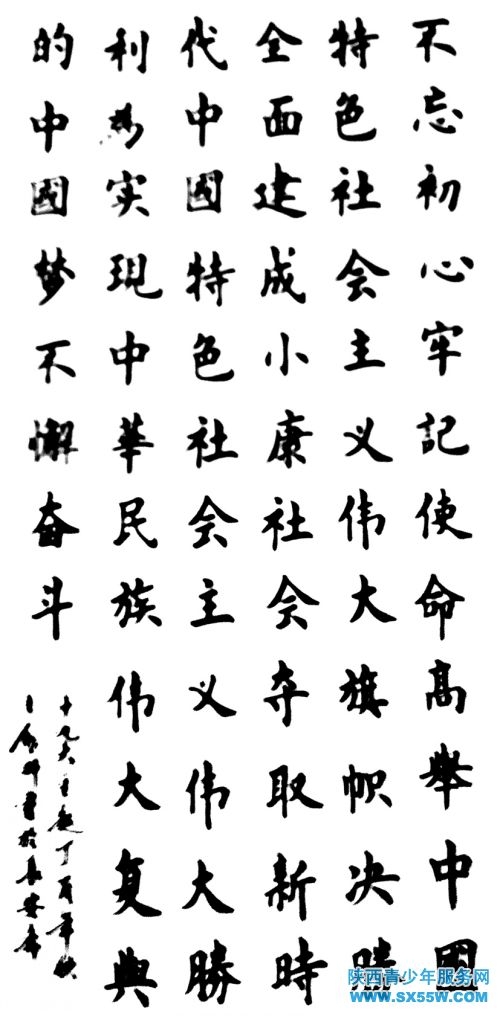 不忘初心牢記使命高舉中國
特色社会主义伟大旗帜决勝
全面建成小康社会夺取新時
代中國特色社会主义伟大勝
利为实現中華民族伟大复興
的中國梦不懈奋斗
十九大主题丁酉年秋
書於長安
陕西青少年服务网
WWW.SX55W.COM